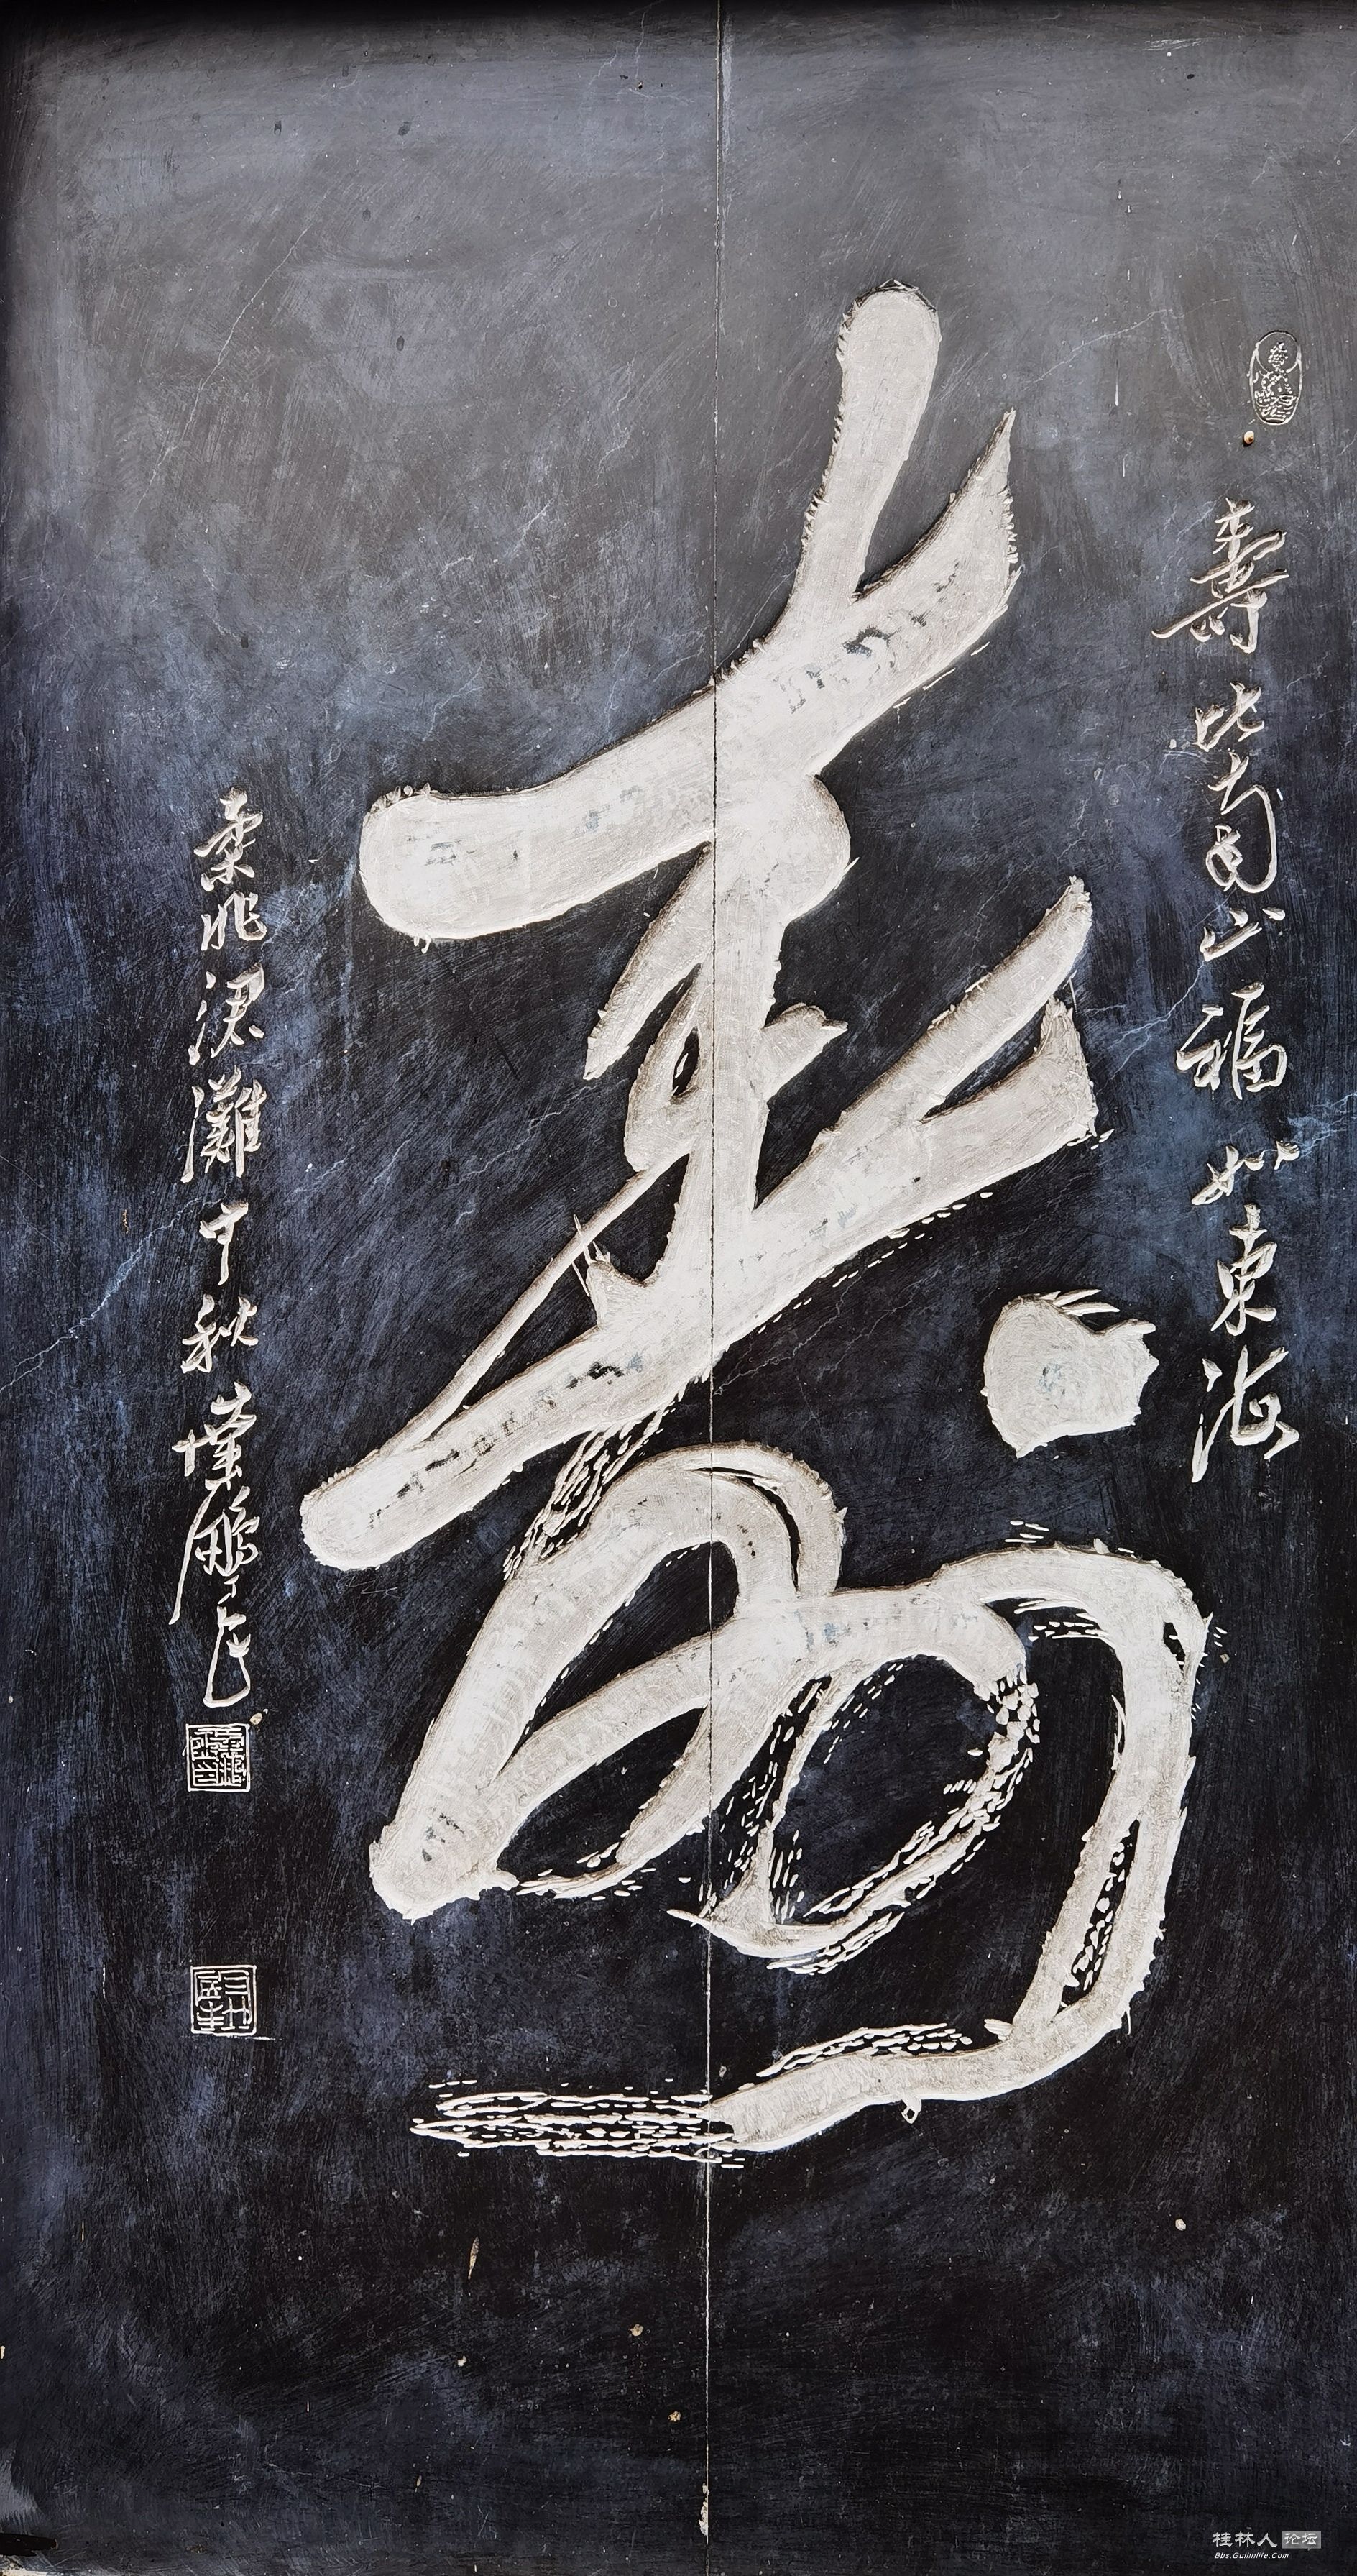 壽比南山福如東海
壽
柔兆涒灘中秋
桂林人论坛
Bbs.Guilinlife.Com